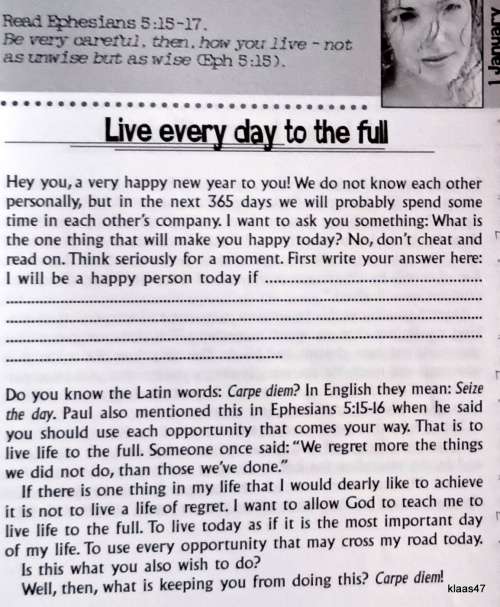 Read Ephesians 5:15-17.
Be very careful, then, how you live - not
as unwise but as wise (Eph 5:15).
1 January
Live every day to the full
Hey you, a very happy new year to you! We do not know each other
personally, but in the next 365 days we will probably spend some
time in each other's company. I want to ask you something: What is
the one thing that will make you happy today? No, don't cheat and
read on. Think seriously for a moment. First write your answer here:
I will be a happy person today if ..........................................
Do you know the Latin words: Carpe diem? In English they mean: Seize
the day. Paul also mentioned this in Ephesians 5:15-16 when he said
you should use each opportunity that comes your way. That is to
live life to the full. Someone once said: "We regret more the things
we did not do, than those we've done."
If there is one thing in my life that I would dearly like to achieve
it is not to live a life of regret. I want to allow God to teach me to
live life to the full. To live today as if it is the most important day
of my life. To use every opportunity that may cross my road today.
Is this what you also wish to do?
Well, then, what is keeping you from doing this? Carpe diem!
klaas47